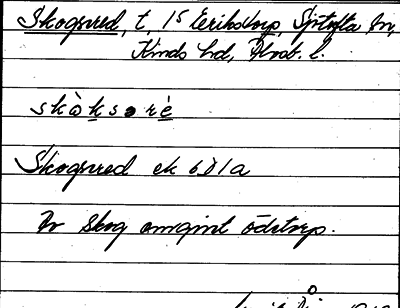 Skogsred, t. 15 Eriksdorp, Sjötofta sn,
Kinds hd, Älvsb. l.
skòksorè
Skogsred ek 6 J 1a
Av skog omgivet ödetorp.